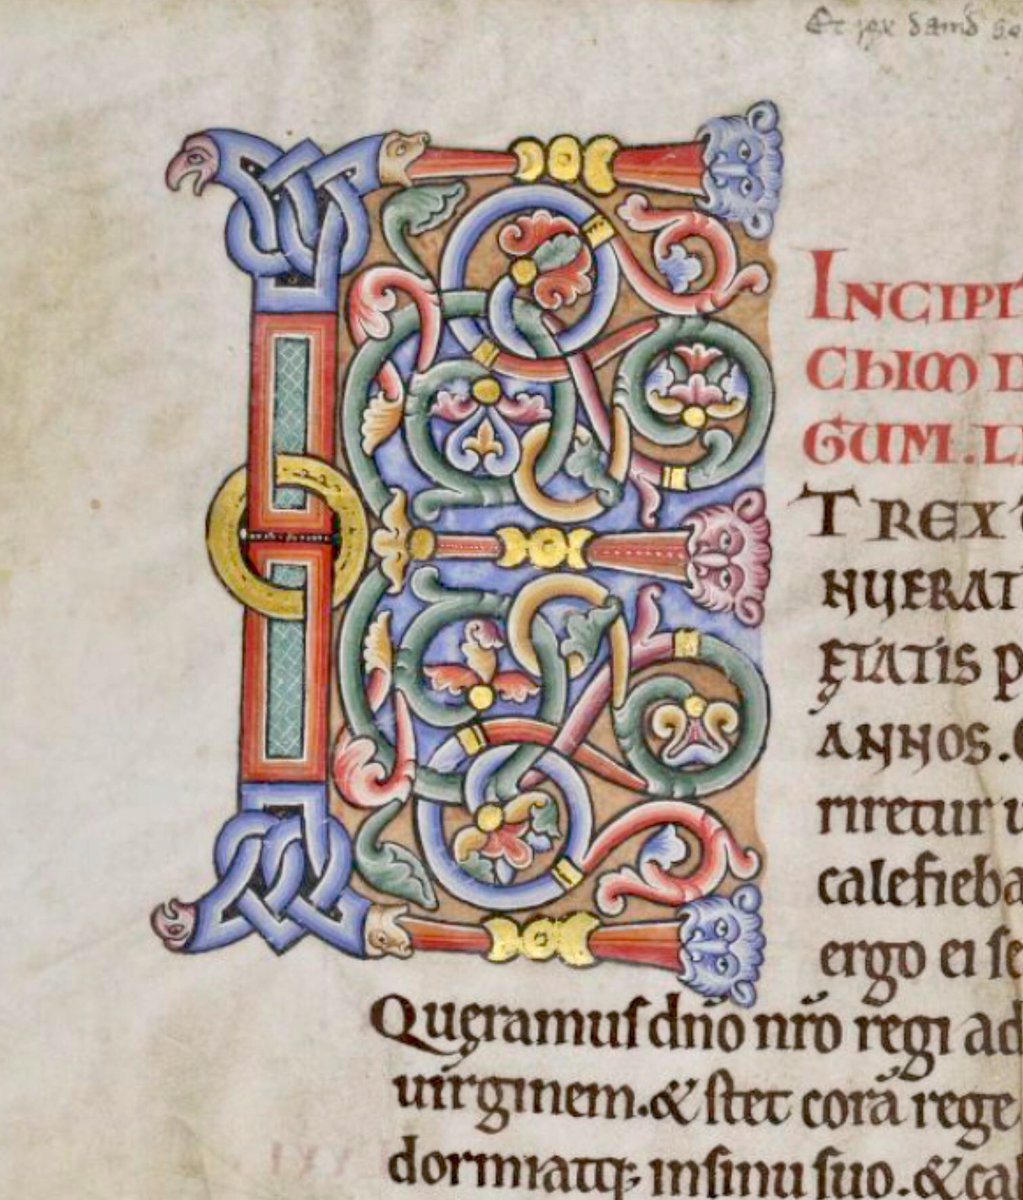 Et rex dauid
INCIPI
CHIM
GUM.LI
T REX
NUERAT
ĘTATIS P
ANNOS.
riretur u
calefieba
ergo ei ſe
Quęramuſ dn̄o nr̄o regi ad
uirginem.& ſtet corā rege
dormiatq; inſinu ſuo.& cal